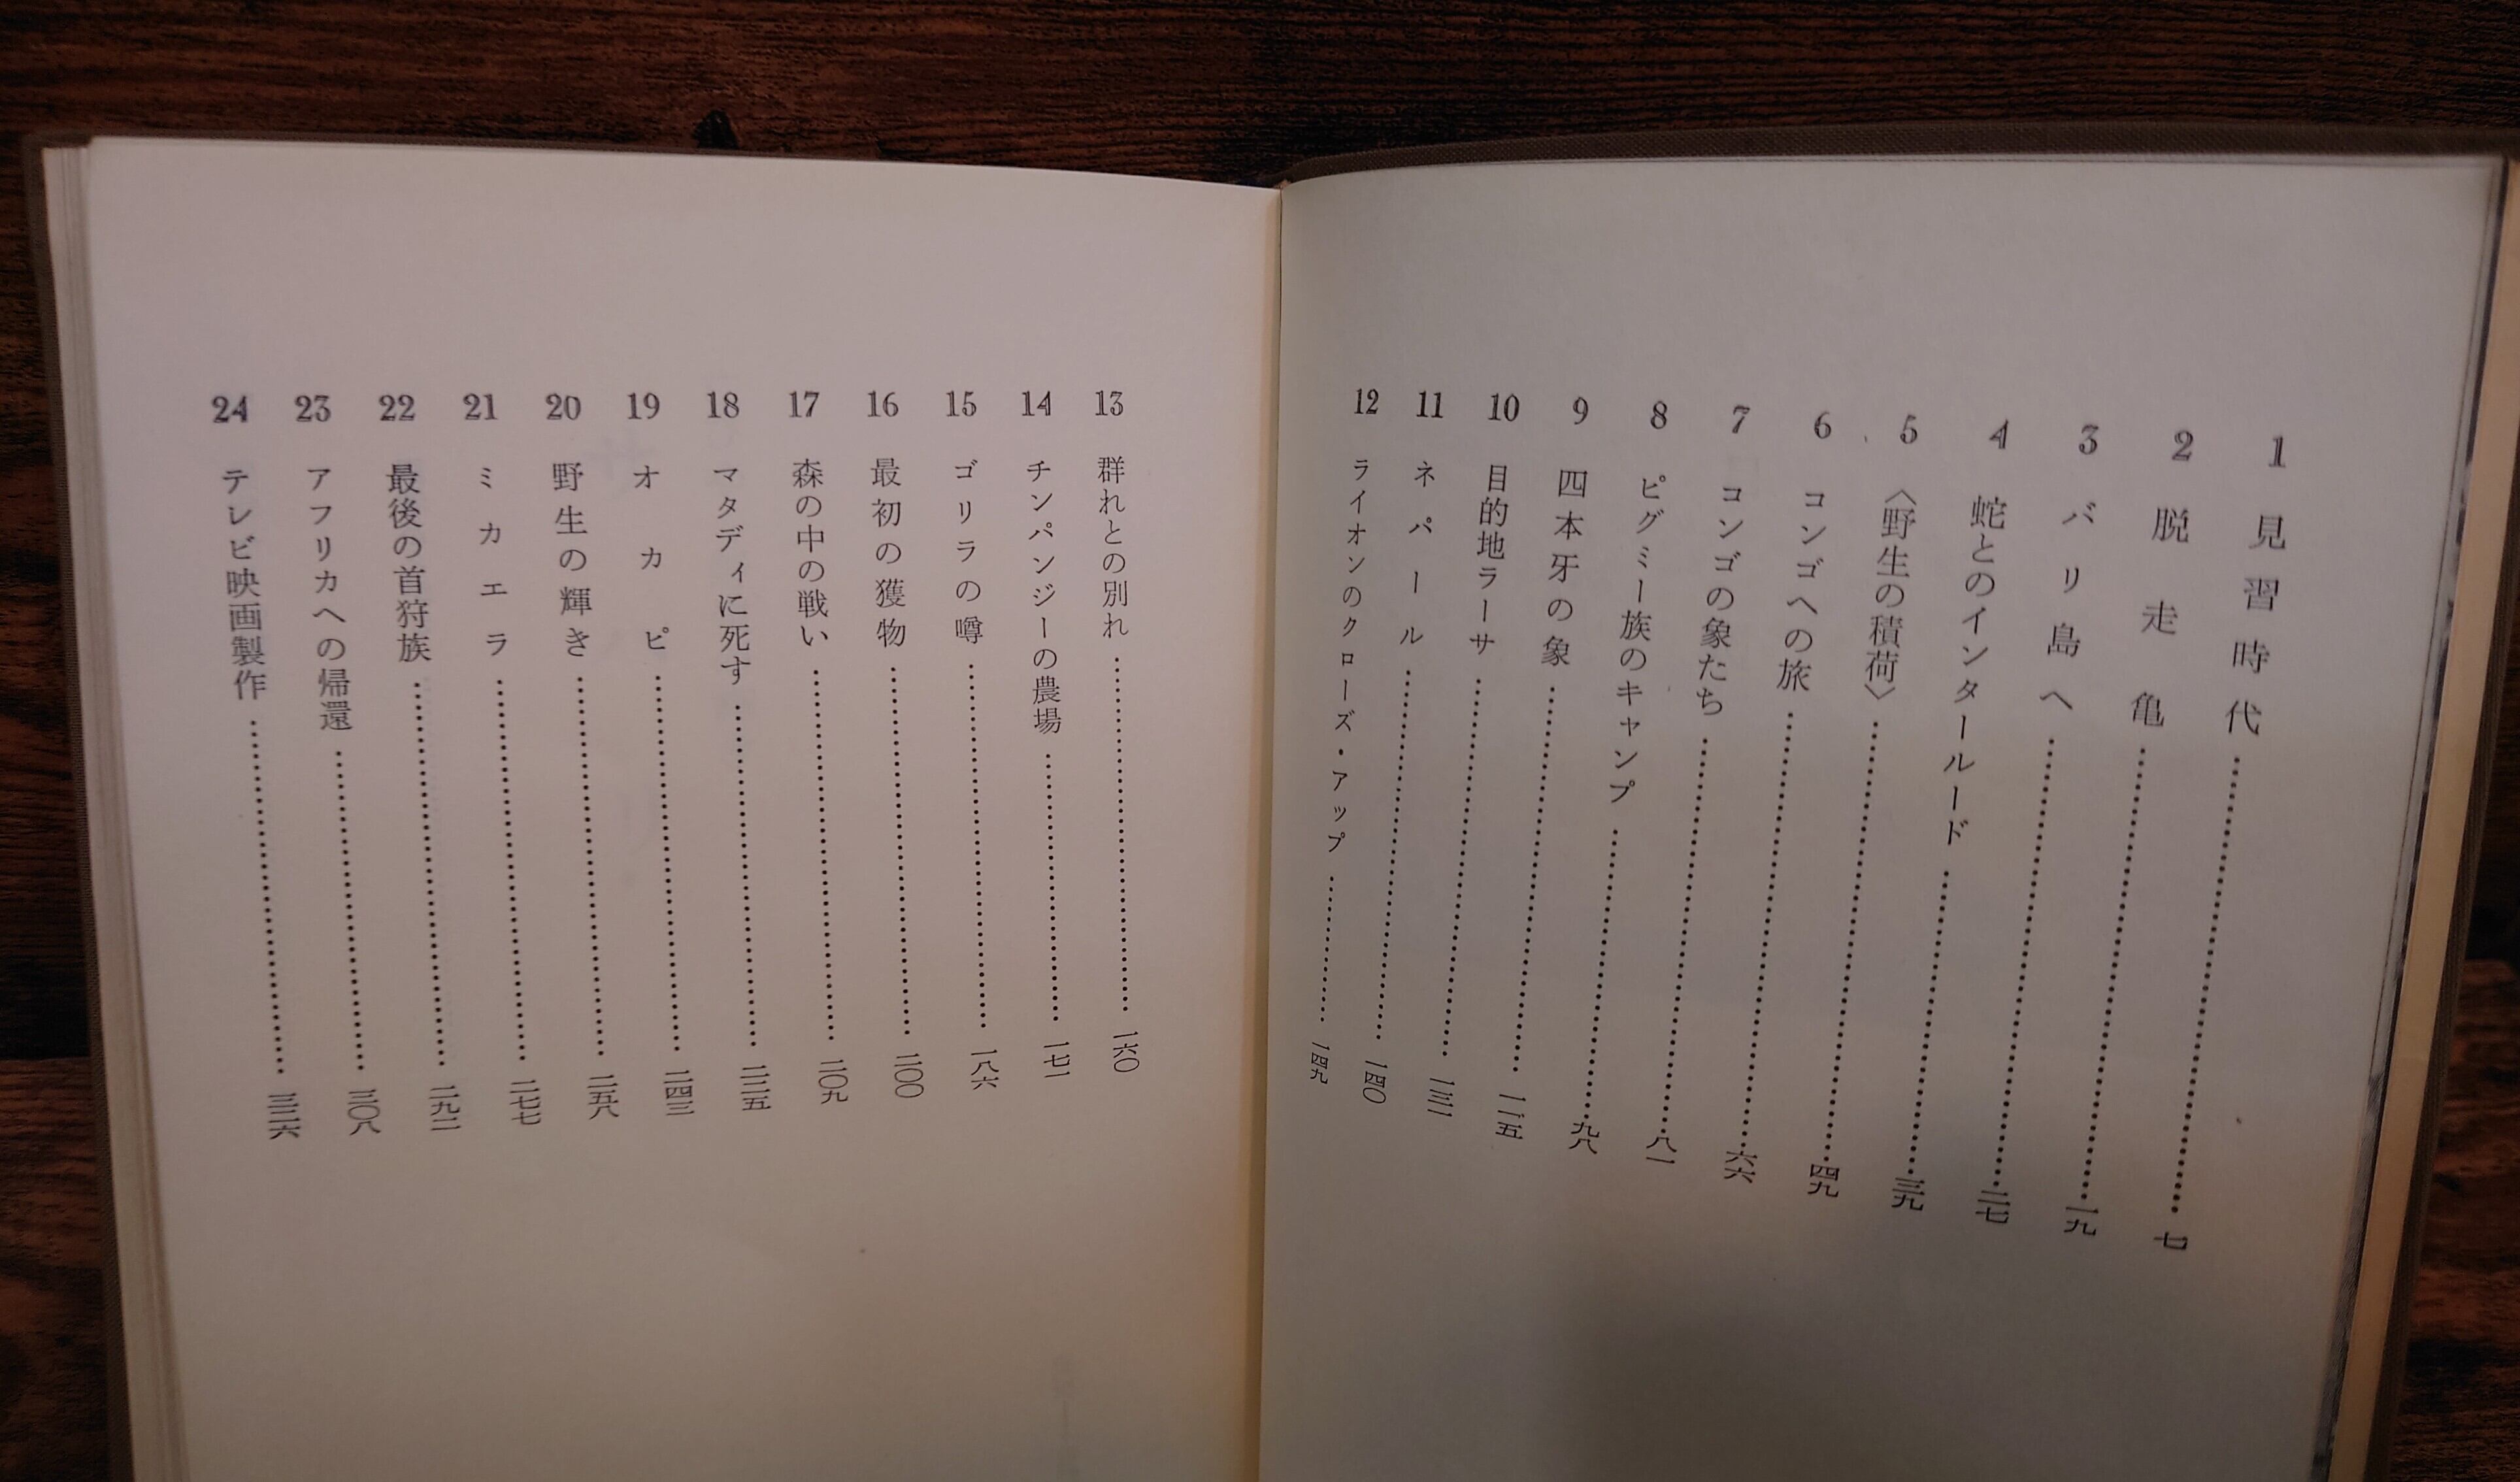 1 見習時代……七
2 脱走亀……一九
3 バリ島へ……二七
4 蛇とのインタールード……三九
5 〈野生の積荷〉……四九
6 コンゴへの旅……六六
7 コンゴの象たち……八一
8 ピグミー族のキャンプ……九八
9 四本牙の象……一一五
10 目的地ラーサ……一三一
11 ネパール……一四〇
12 ライオンのクローズ・アップ……一四九
13 群れとの別れ……一六〇
14 チンパンジーの農場……一七一
15 ゴリラの噂……一八六
16 最初の獲物……二〇〇
17 森の中の戦い……二〇九
18 マタディに死す……二二五
19 オカピ……二四三
20 野生の輝き……二五八
21 ミカエラ……二七七
22 最後の首狩族……二九二
23 アフリカへの帰還……三〇八
24 テレビ映画製作……三二六